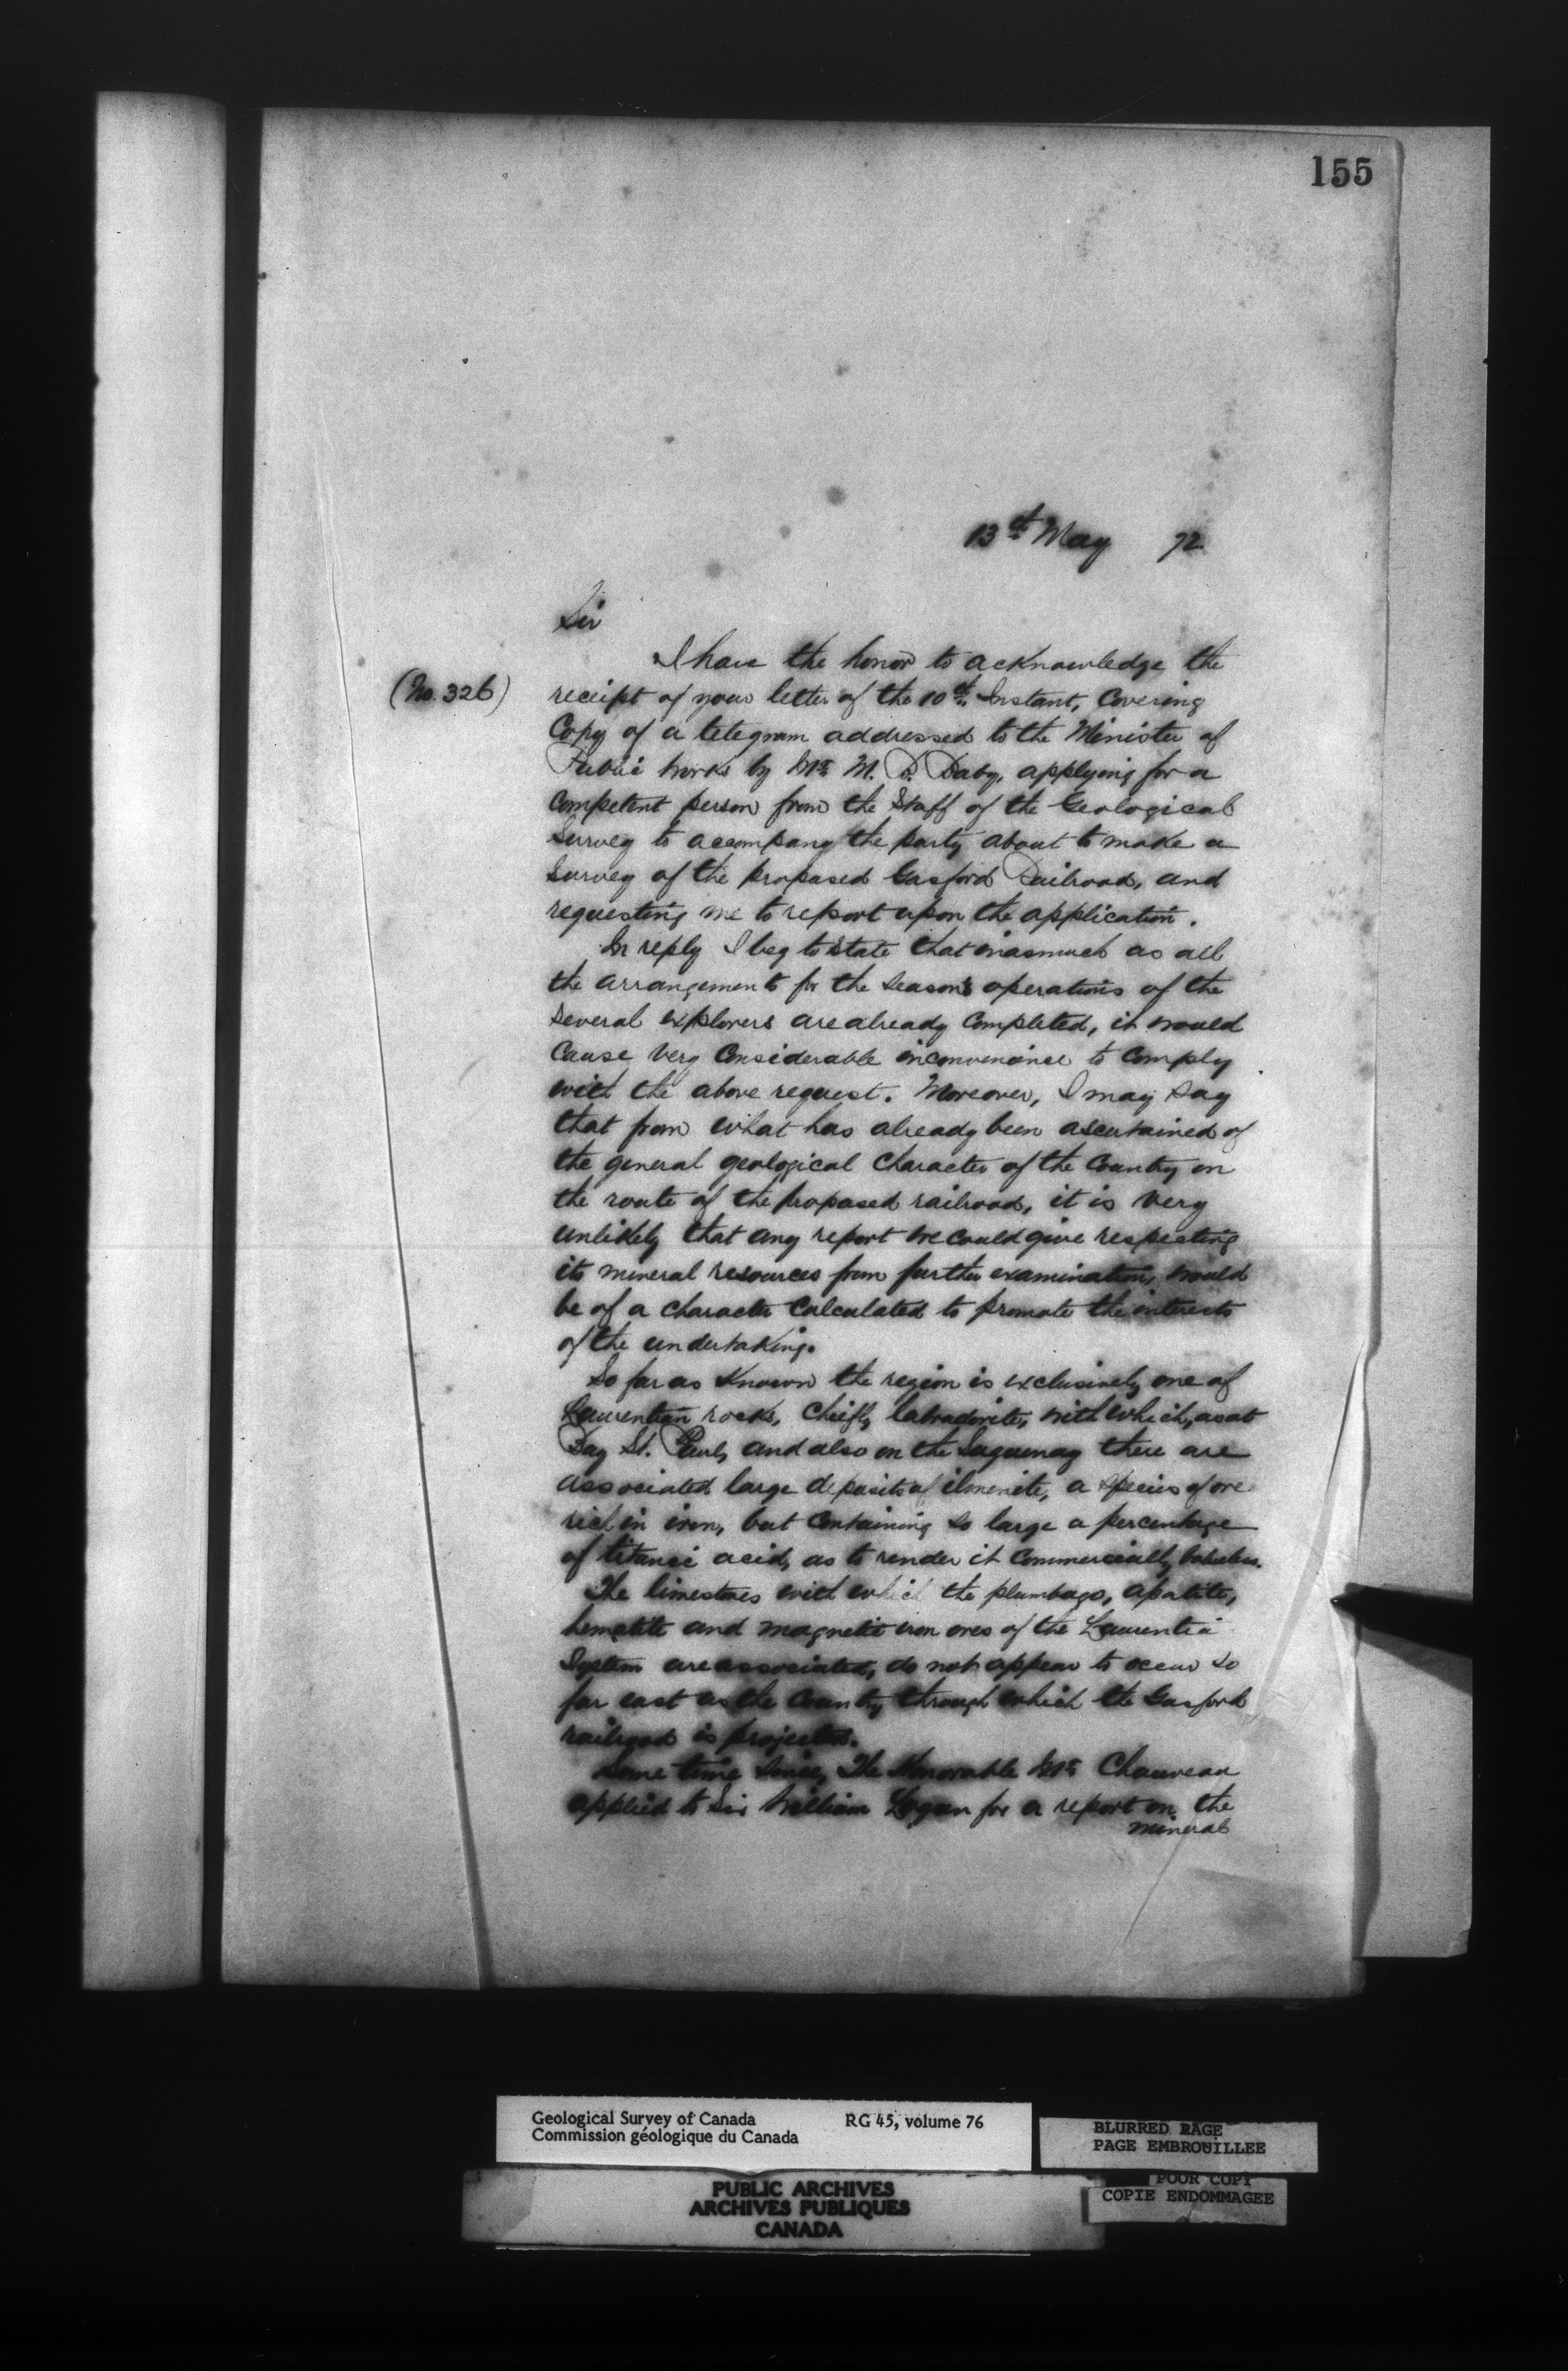 155
13th May 72
Sir
I have the honor to acknowledge the
(No. 326)
receipt of your letter of the 10th Instant, Covering
Copy of a telegram addressed to the Minister of
Public Works by Mr M. D. Daby, applying for a
Competent person from the Staff of the Geological
Survey to accompany the party about to make a
Survey of the proposed Gosford Railroad, and
requesting me to report upon the application.
In reply I beg to state that inasmuch as all
the arrangements for the Season's operations of the
Several explorers are already Completed, it would
Cause very Considerable inconvenience to Comply
with the above request. Moreover, I may say
that from what has already been ascertained of
the general geological Character of the Country on
the route of the proposed railroad, it is very
unlikely that any report we could give respecting
its mineral resources from further examination, would
be of a character Calculated to promote the interests
of the undertaking.
So far as Known the region is exclusively one of
Laurentian rocks, Chiefly labradorite, with which, as at
Bay St. Paul, and also on the Saguenay there are
associated large deposits of ilmenite, a Species of ore
rich in iron, but Containing so large a percentage
of titanic acid, as to render it Commercially valueless.
The limestones with which the plumbago, apatite,
hematite and magnetic iron ores of the Laurentian
System are associated, do not appear to occur so
far east as the Country through which the Gosford
railroad is projected.
Some time since, The Honorable Mr Chauveau
applied to Sir William Logan for a report on the
mineral
Geological Survey of Canada RG 45, volume 76
Commission géologique du Canada
BLURRED PAGE
PAGE EMBROUILLEE
POOR COPY
COPIE ENDOMMAGEE
PUBLIC ARCHIVES
ARCHIVES PUBLIQUES
CANADA